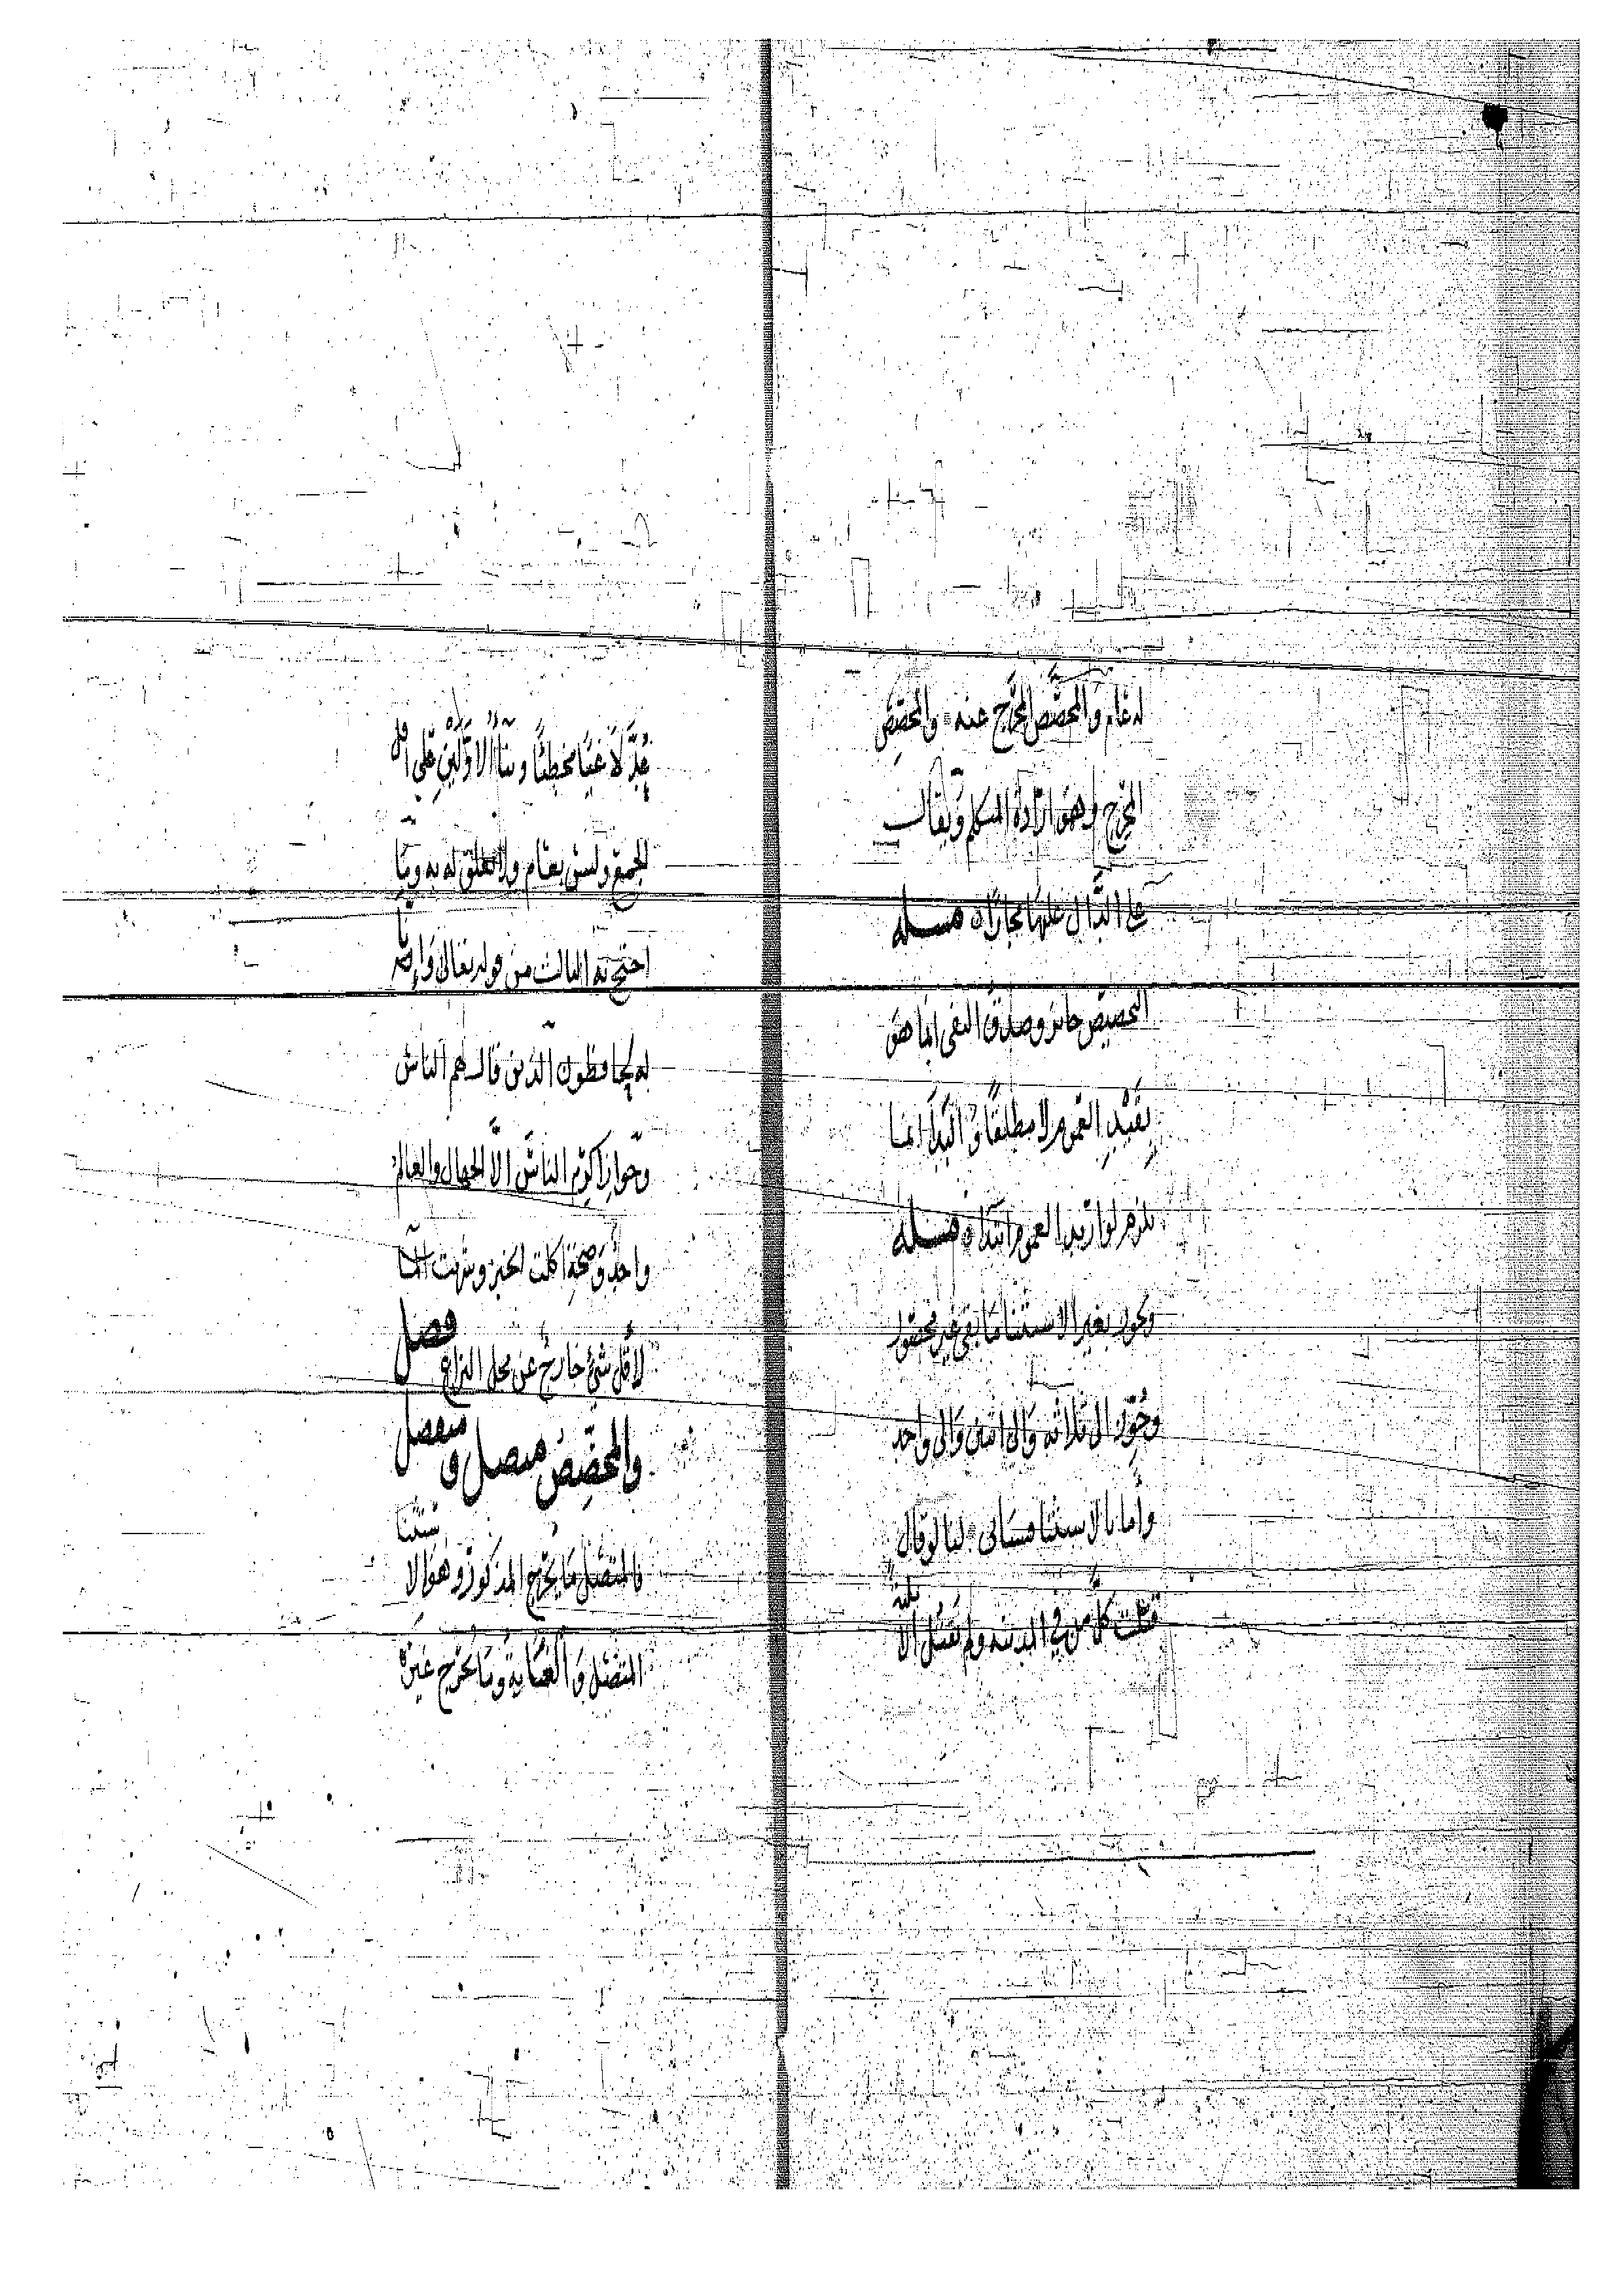 له عام والمخصَّص المخرَج عنه والمخصِّص
المخرِج وهو ارادة المتكلم ويقال
على الدَّال عليها مجازًا مسله
التخصيص جائز وصدق النفى انما هو
بقَيْدِ العموم لا مطلقًا والبَدَا انما
يلزم لو اريد العموم ابتداء مسله
ويجوز بغير الاستثنا ما بقى غير محصور
وجُوِّز الى ثلاثه والى اثنين والى واحد
وأما بالاستثنا فسياتى لنا لو قال
قتلت كلَّ من في المدينه ولم يَقتُل الا ثلثة
عُدَّ لاغيًا مخطئًا وبنآءُ الاوَّلَيْنِ على اقل
الجمع وليس بعام ولا تعلق له به وبما
احتج به الثالث من قوله تعالى وَإِنَّا
له لحافظون الذين قال لهم الناس
وجواز اكرم الناس الَّا الجهال والعالم
واحدٌ وصحة اكلت الخبز وشربت المآ
لأقل شئٍ خارجٌ عن محل النزاع فصل
والمخصِّص متصل ومنفصل
فالمتصل ما يُخرِج المذكور وهو الاستثنا
المتصل والغاية وما يُخرِج غيره